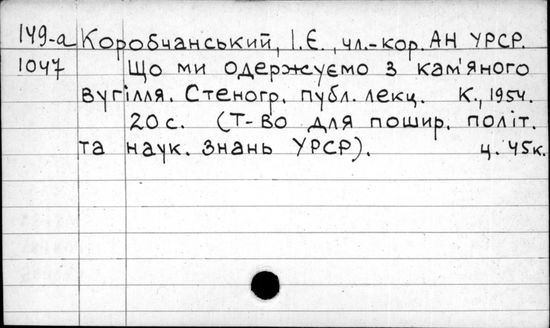 149-а Коробчанський, І.Є., чл.-кор. АН УРСР.
1047 Що ми одержуємо з кам'яного
вугілля. Стеногр. публ. лекц. К., 1954.
20 с. (Т-во для пошир. політ.
та наук. знань УРСР). ц. 45к.